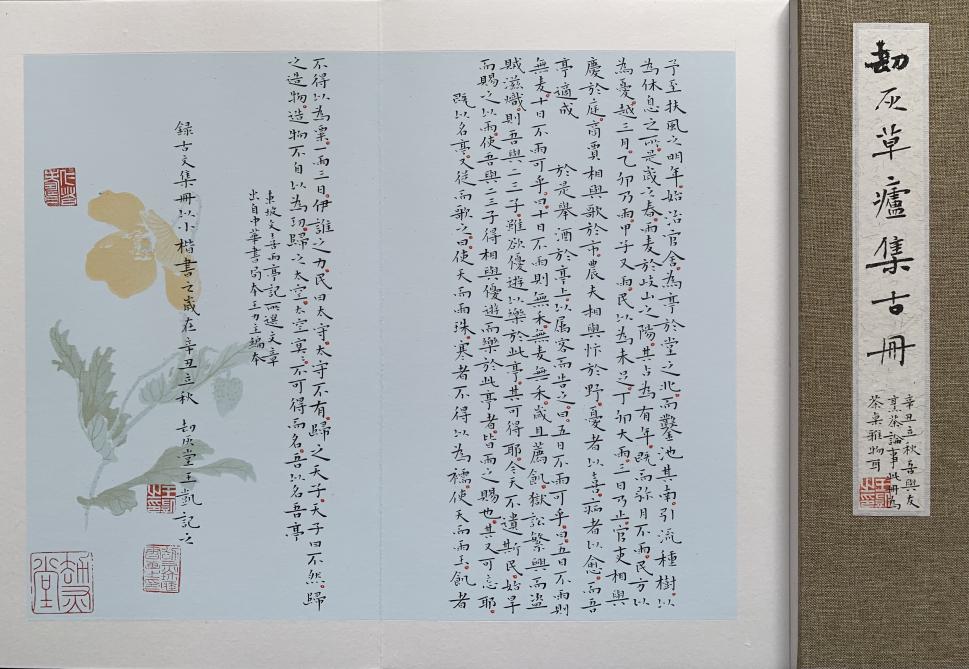 劫灰草瀘集古冊
辛丑立秋喜與友
烹茶論事此冊為
茶桌雅物耳
予至扶風之明年始治官舍為亭於堂之北而鑿池其南引流種樹以
為休息之所是歲之春雨麦於岐山之陽其占為有年既而弥月不雨民方以
為憂越三月乙卯乃雨甲子又雨民以為未足丁卯大雨三日乃止官吏相與
慶於庭商賈相與歌於市農夫相與忭於野憂者以喜病者以愈而吾
亭適成 於是舉酒於亭上以属客而告之曰五日不雨可乎曰五日不雨則
無麦十日不雨可乎曰十日不雨則無禾無麦無禾歲且薦飢獄訟繁興而盗
賊滋熾則吾與二三子雖欲優遊以樂於此亭其可得耶今天不遺斯民始旱
而賜之以雨使吾與二三子得相與優遊而樂於此亭者皆雨之賜也其又可忘耶
既以名亭又從而歌之曰使天而雨珠寒者不得以為襦使天而雨玉飢者
不得以為粟一雨三日伊誰之力民曰太守太守不有歸之天子天子曰不然歸
之造物造物不自以為功歸之太空太空冥冥不可得而名吾以名吾亭
東坡文喜雨亭記所選文章
出自中華書局本王力主編本
錄古文集冊以小楷書之歲在辛丑立秋 劫灰堂王凱記之
劫灰堂